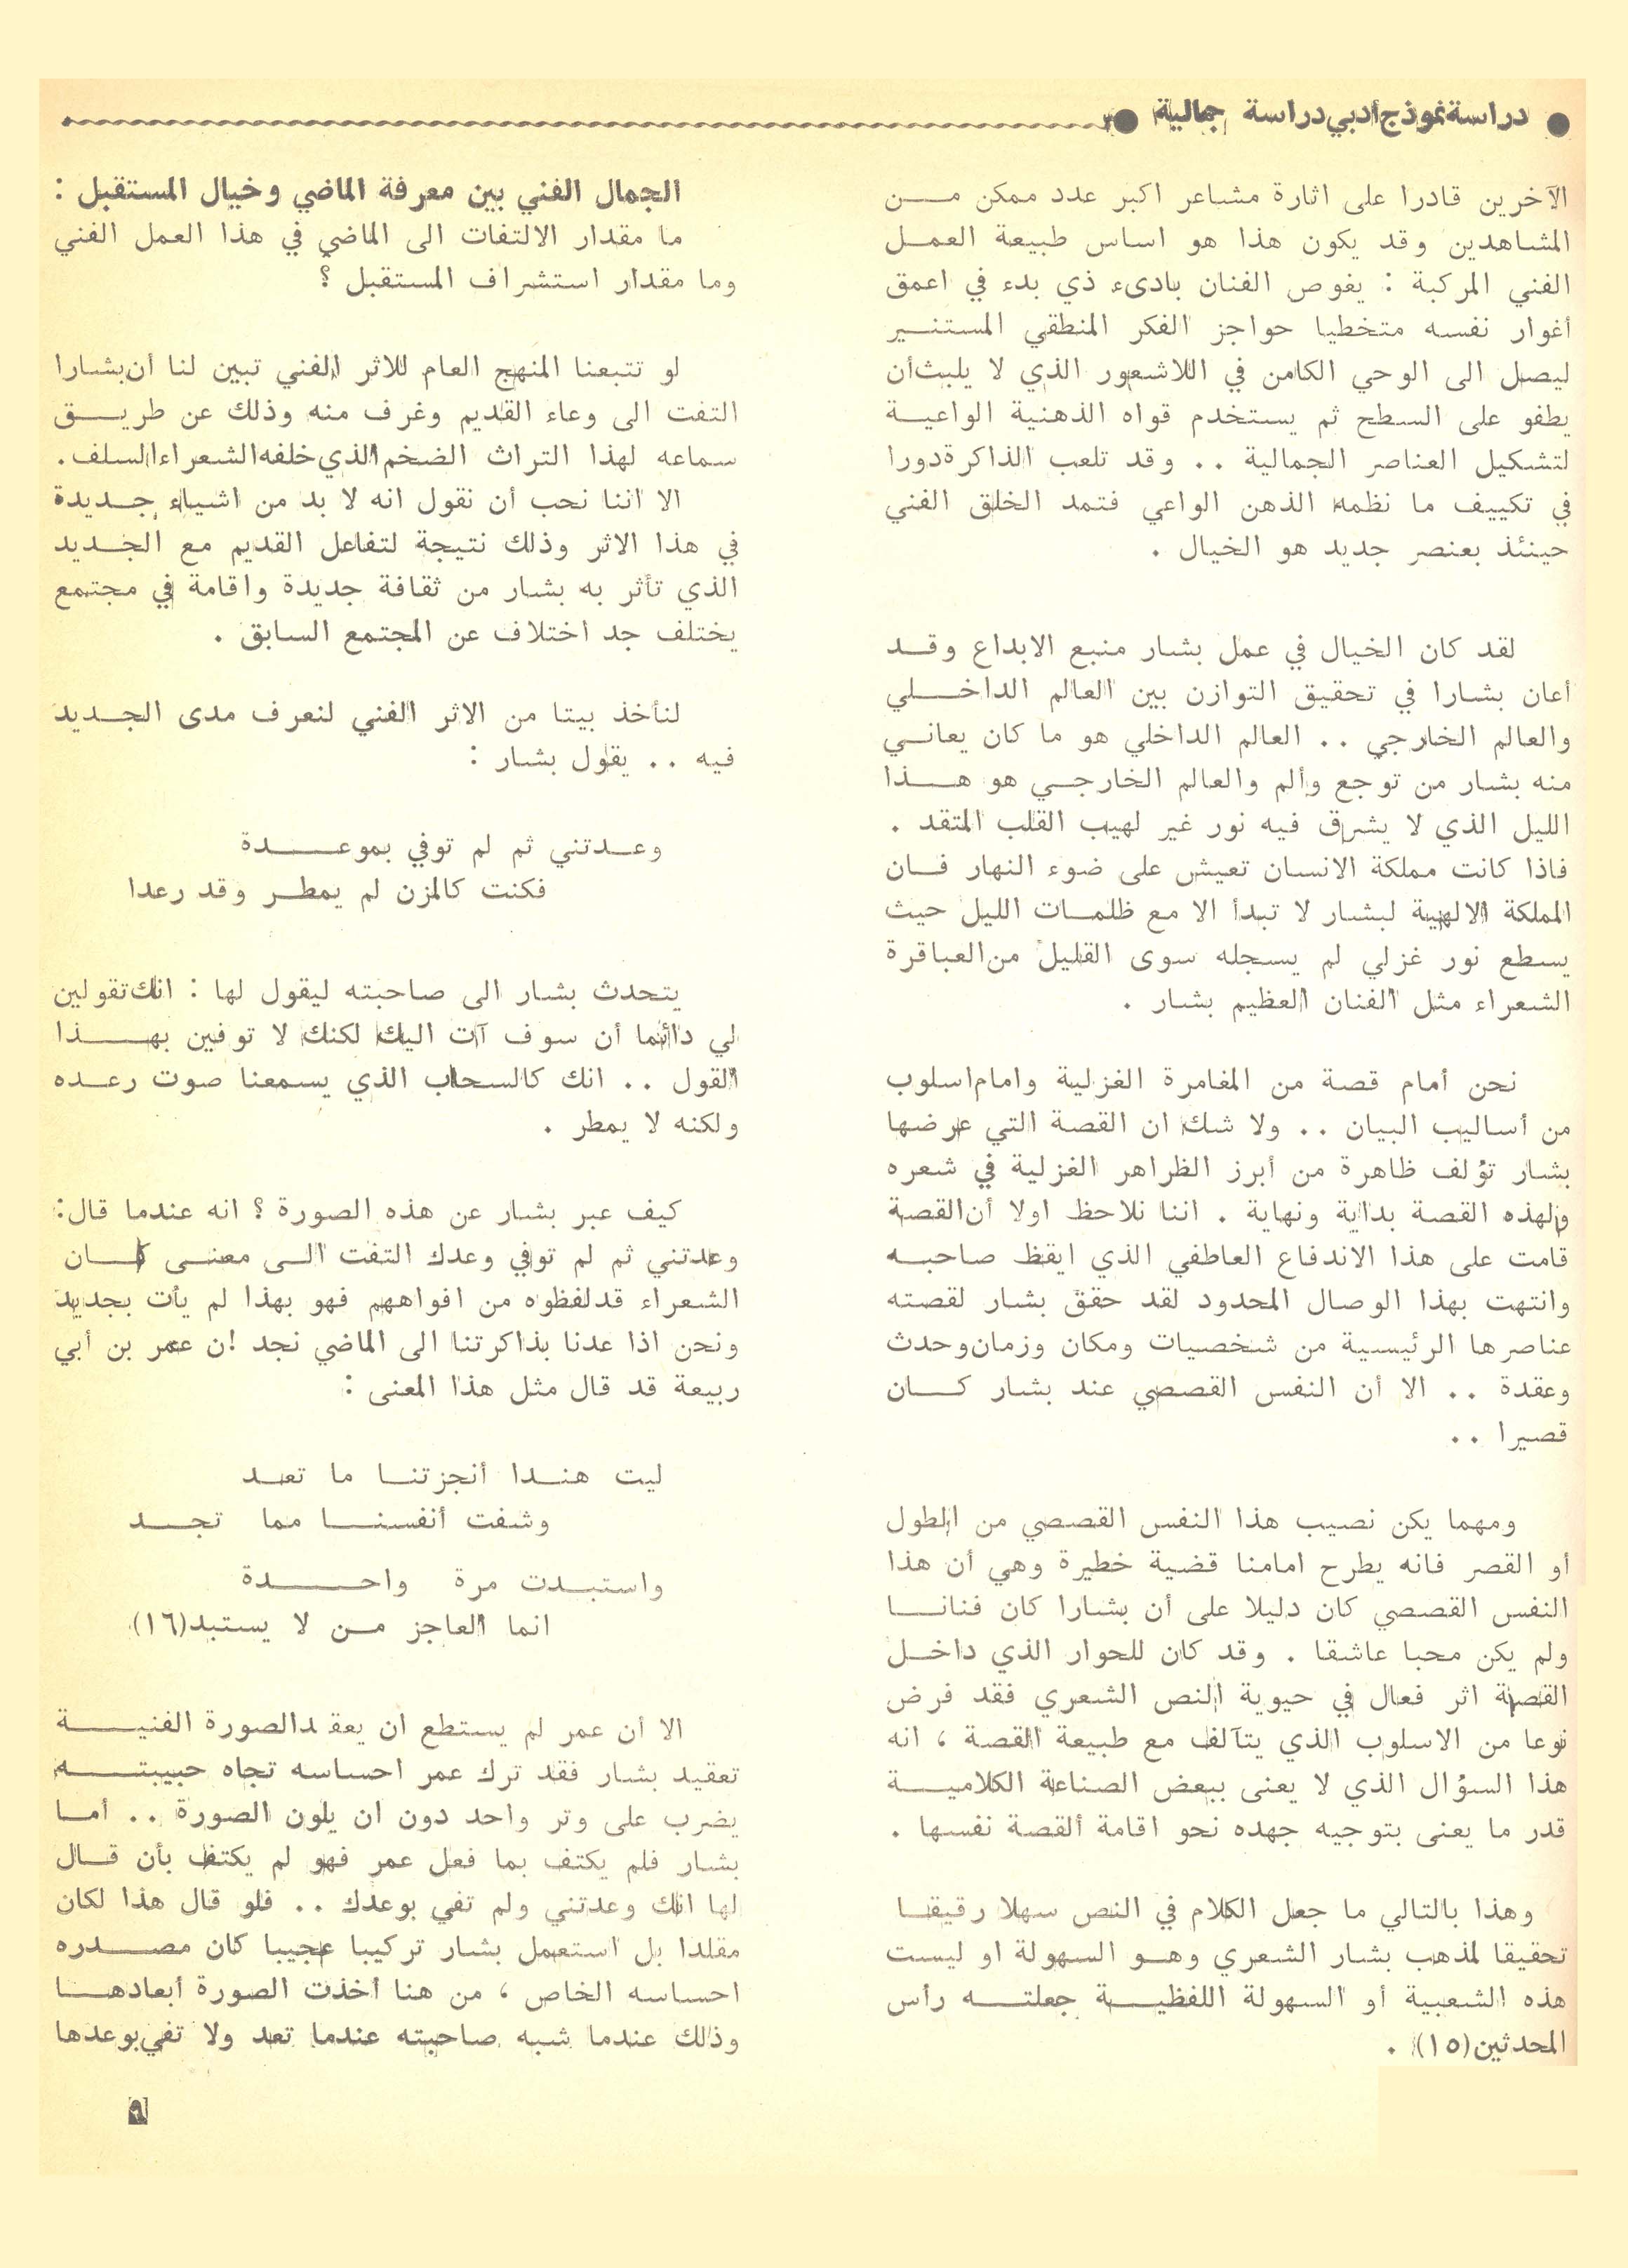 ● دراسة نموذج أدبي دراسة جمالية ●
الآخرين قادرا على اثارة مشاعر اكبر عدد ممكن مـــن
المشاهدين وقد يكون هذا هو اساس طبيعة العمـل
الفني المركبة : يغوص الفنان بادىء ذي بدء في اعمق
أغوار نفسه متخطيا حواجز الفكر المنطقي المستنـــير
ليصل الى الوحي الكامن في اللاشعور الذي لا يلبث أن
يطفو على السطح ثم يستخدم قواه الذهنية الواعيــة
لتشكيل العناصر الجمالية .. وقد تلعب الذاكرة دورا
في تكييف ما نظمه الذهن الواعي فتمد الخلق الفني
حينئذ بعنصر جديد هو الخيال .
لقد كان الخيال في عمل بشار منبع الابداع وقـد
أعان بشارا في تحقيق التوازن بين العالم الداخـــلي
والعالم الخارجي .. العالم الداخلي هو ما كان يعانـي
منه بشار من توجع وألم والعالم الخارجـي هو هــذا
الليل الذي لا يشرق فيه نور غير لهيب القلب المتقد .
فاذا كانت مملكة الانسان تعيش على ضوء النهار فـان
المملكة الالهية لبشار لا تبدأ الا مع ظلمـات الليل حيث
يسطع نور غزلي لم يسجله سوى القليل من العباقرة
الشعراء مثل الفنان العظيم بشار .
نحن أمام قصة من المغامرة الغزلية وامام اسلوب
من أساليب البيان .. ولا شك ان القصة التي عرضها
بشار تؤلف ظاهرة من أبرز الظراهر الغزلية في شعره
ولهذه القصة بداية ونهاية . اننا نلاحظ اولا أن القصة
قامت على هذا الاندفاع العاطفي الذي ايقظ صاحبـه
وانتهت بهذا الوصال المحدود لقد حقق بشار لقصته
عناصرها الرئيسية من شخصيات ومكان وزمان وحدث
وعقدة .. الا أن النفس القصصي عند بشار كـــان
قصيرا ..
ومهما يكن نصيب هذا النفس القصصي من الطول
أو القصر فانه يطرح امامنا قضية خطيرة وهي أن هذا
النفس القصصي كان دليلا على أن بشارا كان فنانـــا
ولم يكن محبا عاشقا . وقد كان للحوار الذي داخـل
القصة اثر فعال في حيوية النص الشعري فقد فرض
نوعا من الاسلوب الذي يتآلف مع طبيعة القصة ، انه
هذا السؤال الذي لا يعنى ببعض الصناعة الكلاميــة
قدر ما يعنى بتوجيه جهده نحو اقامة ألقصة نفسها .
وهذا بالتالي ما جعل الكلام في النص سهلا رقيقـا
تحقيقا لمذهب بشار الشعري وهـو السهولة او ليست
هذه الشعبية أو السهولة اللفظيـــة جعلتــه رأس
المحدثين(١٥) .
الجمال الفني بين معرفة الماضي وخيال المستقبل :
ما مقدار الالتفات الى الماضي في هذا العمل الفني
وما مقدار استشراف المستقبل ؟
لو تتبعنا المنهج العام للاثر الفني تبين لنا أن بشارا
التفت الى وعاء القديم وغرف منه وذلك عن طريــق
سماعه لهذا التراث الضخم الذي خلفه الشعراء السلف .
الا اننا نحب أن نقول انه لا بد من اشياء جـديدة
في هذا الاثر وذلك نتيجة لتفاعل القديم مع الجـديد
الذي تأثر به بشار من ثقافة جديدة واقامة في مجتمع
يختلف جد اختلاف عن المجتمع السابق .
لنأخذ بيتا من الاثر الفني لنعرف مدى الجـديد
فيه .. يقول بشار :
وعـدتني ثم لم توفي بموعـــدة
فكنت كالمزن لم يمطـر وقد رعدا
يتحدث بشار الى صاحبته ليقول لها : انك تقولين
لي دائما أن سوف آت اليك لكنك لا توفين بهـــذا
القول .. انك كالسحاب الذي يسمعنا صوت رعـده
ولكنه لا يمطر .
كيف عبر بشار عن هذه الصورة ؟ انه عندما قال :
وعدتني ثم لم توفي وعدك التفت الـى معنـى كـان
الشعراء قد لفظوه من افواههم فهو بهذا لم يأت بجديد
ونحن اذا عدنا بذاكرتنا الى الماضي نجد ان عمر بن أبي
ربيعة قد قال مثل هذا المعنى :
ليت هنـدا أنجزتنـا ما تعـد
وشفت أنفسنـــا مما تجــد
واستبـدت مرة واحـــدة
انما العاجز مـن لا يستبد(١٦)
الا أن عمر لم يستطع ان يعقد الصورة الفنيـــة
تعقيد بشار فقد ترك عمر احساسه تجاه حبيبتـــه
يضرب على وتر واحد دون ان يلون الصورة .. أمـا
بشار فلم يكتف بما فعل عمر فهو لم يكتف بأن قـال
لها انك وعدتني ولم تفي بوعدك .. فلو قال هذا لكان
مقلدا بل استعمل بشار تركيبا عجيبا كان مصـدره
احساسه الخاص ، من هنا أخذت الصورة أبعادهـا
وذلك عندما شبه صاحبته عندما تعد ولا تفي بوعدها
٩